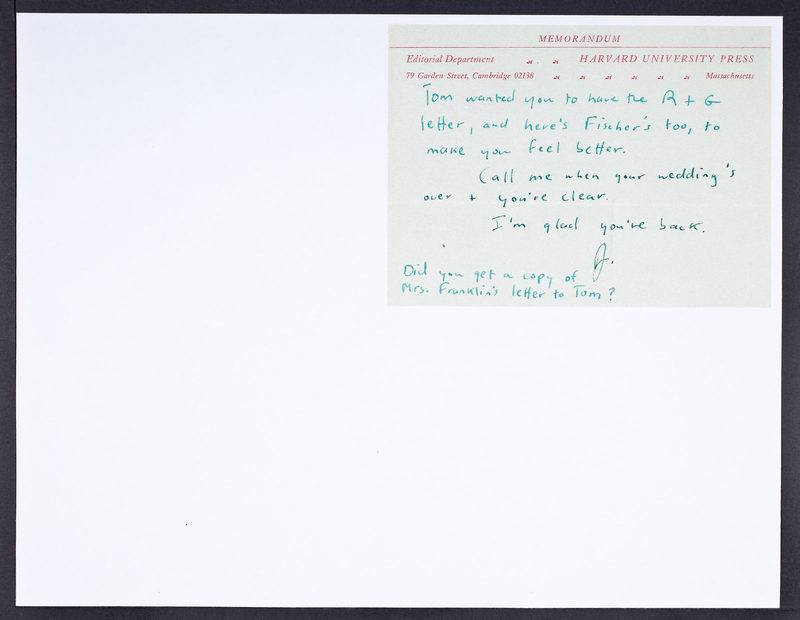 MEMORANDUM
Editorial Department HARVARD UNIVERSITY PRESS
79 Garden Street, Cambridge 02138 Massachusetts
Tom wanted you to have the R + G
letter, and here's Fischer's too, to
make you feel better.
Call me when your wedding's
over + you're clear.
I'm glad you're back.
J.
Did you get a copy of
Mrs. Franklin's letter to Tom?